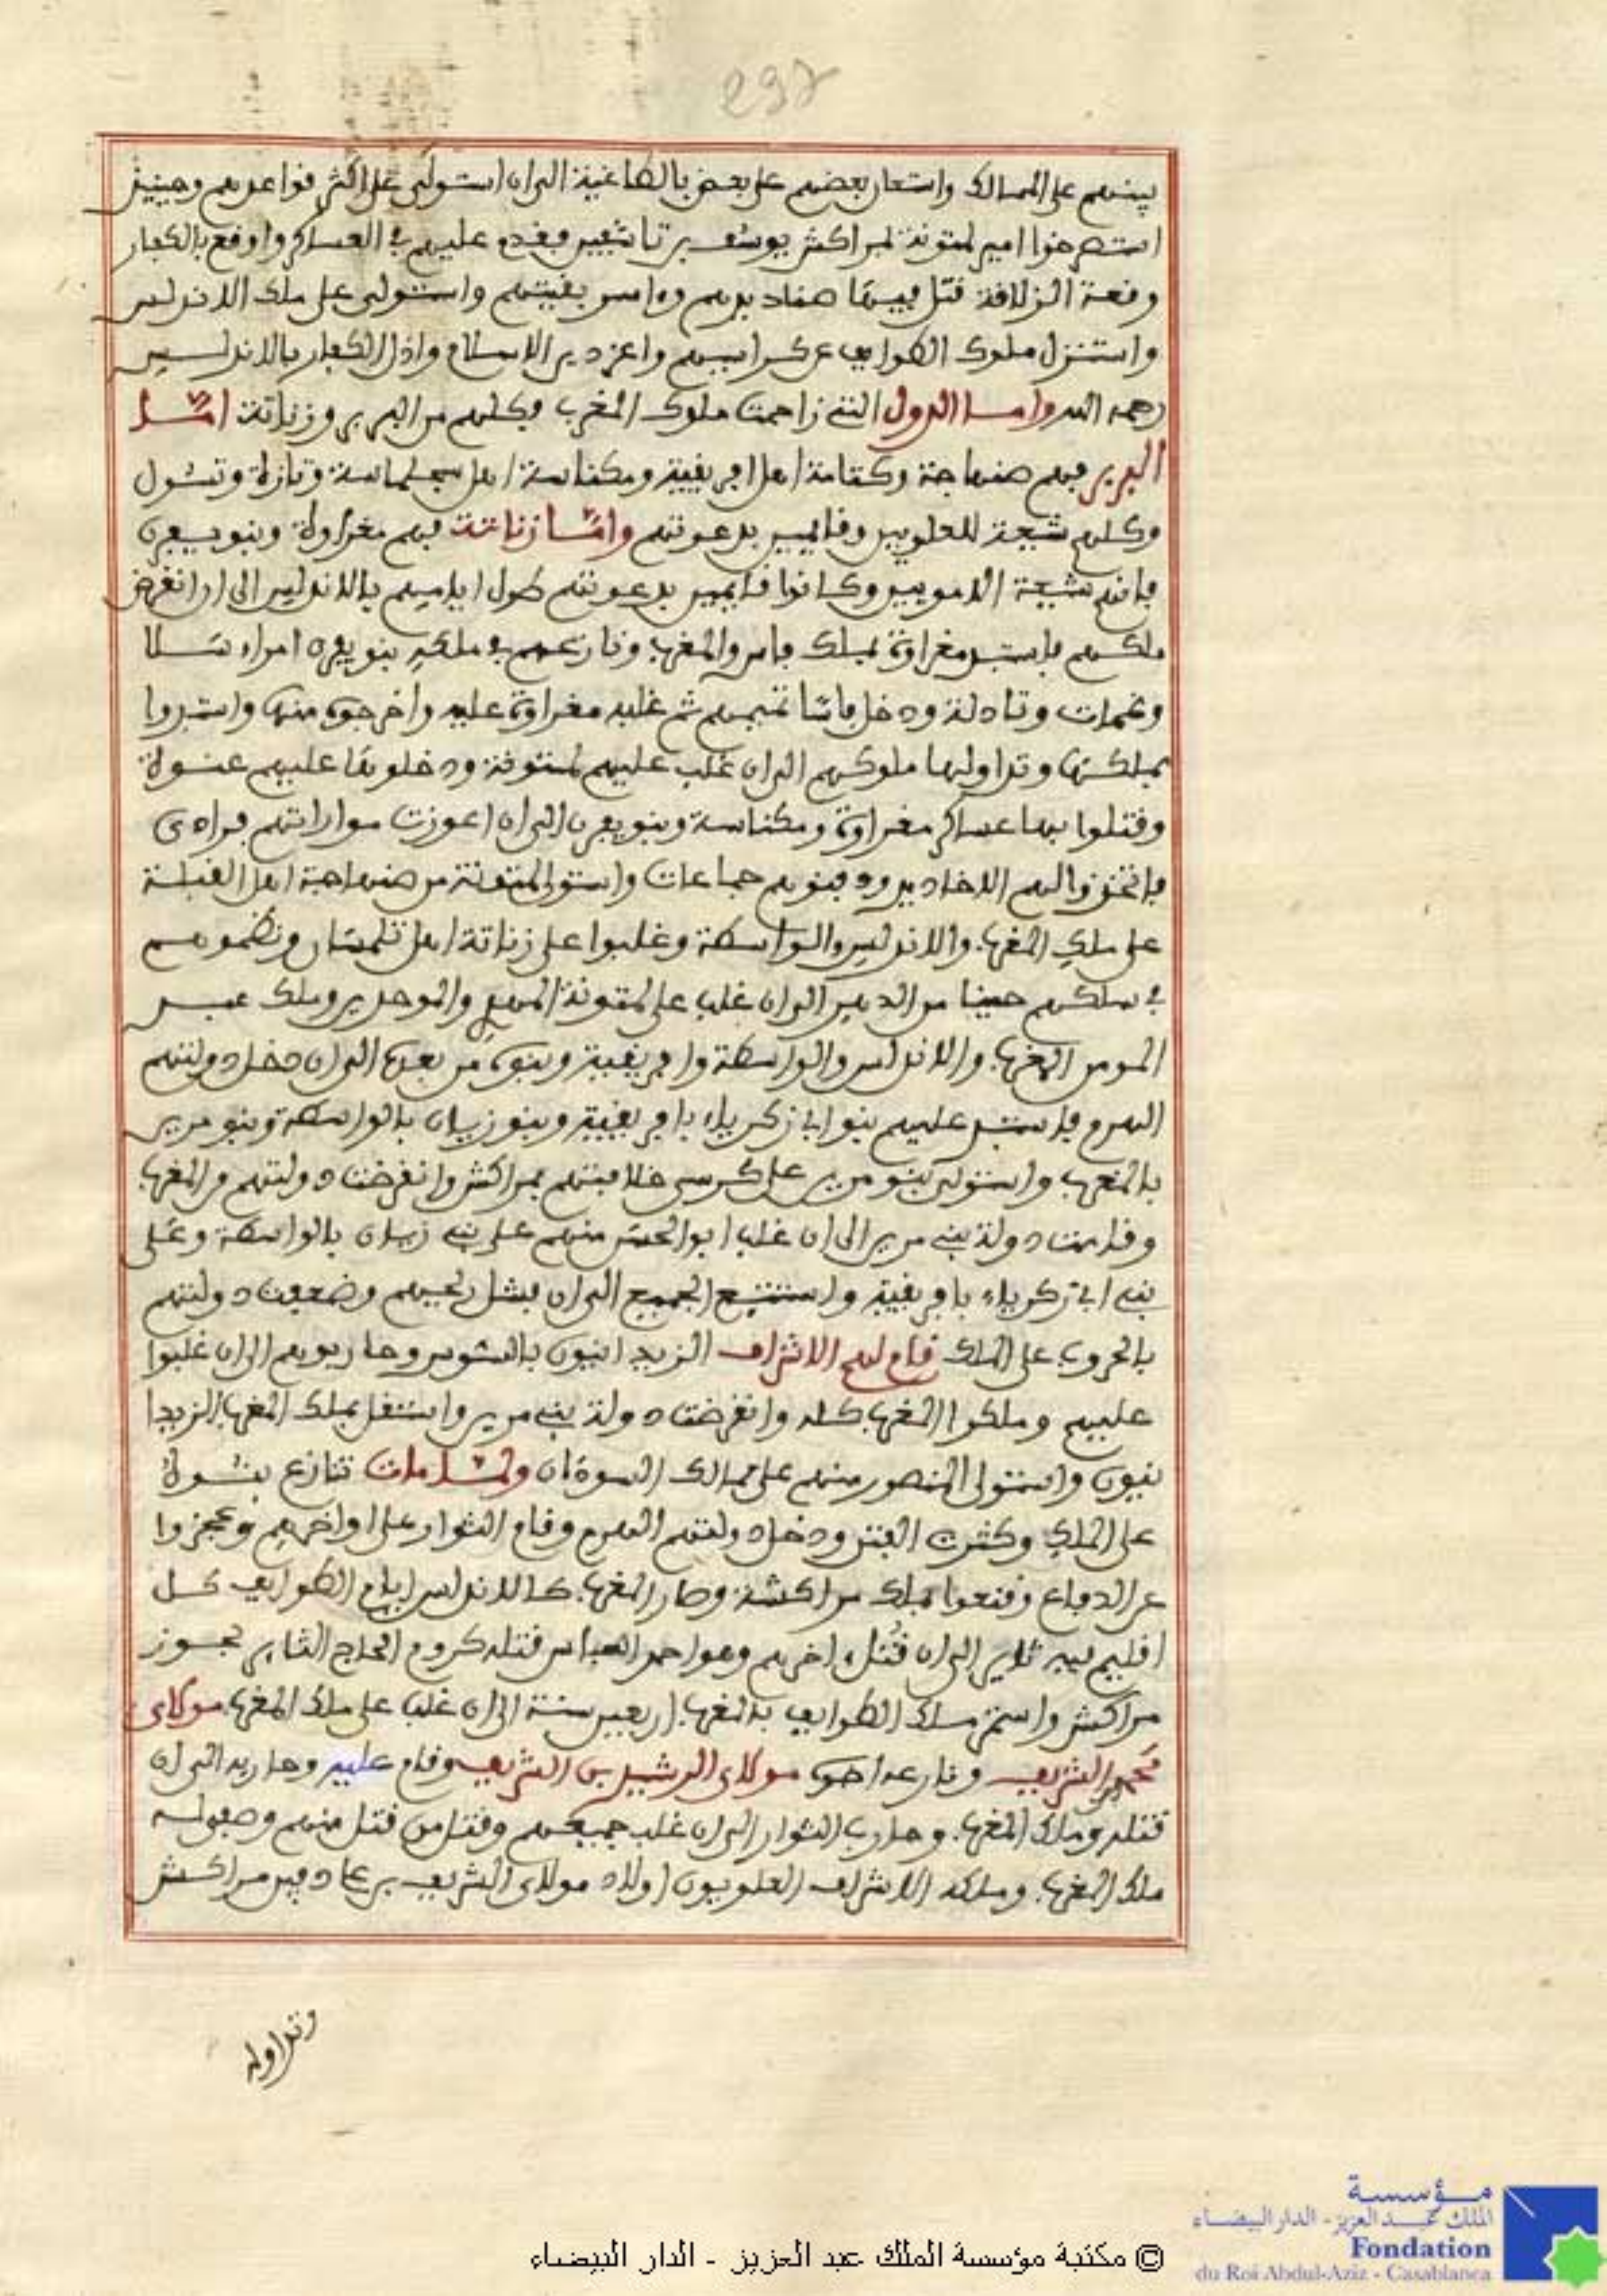 297
بينهم على الممالك واستعان بعضهم على بعض بالطاغية الى ان استولى على اكثر قواعدهم وحينئذ
استصرخوا امير لمتونة بمراكش يوسف بن تاشفين فقدم عليهم في العساكر واوقع بالكفار
وقعة الزلافة قتل فيها صناديدهم واسر بقيتهم واستولى على ملك الاندلس
واستنزل ملوك الطوايف عن كراسيهم واعز دين الاسلام واذل الكفار بالاندلس
رحمه الله واما الدول التي زاحمت ملوك المغرب فكلهم من البربر وزناتة امّا
البربر فهم صنهاجة وكتامة اهل افريقية ومكناسة اهل سجلماسة وتازة وتسول
وكلهم شيعة للعلويين وقايمين بدعوتهم وامّا زناتة فهم مغراوة وبنو يفرن
فانهم شيعة الامويين وكانوا قايمين بدعوتهم طول ايامهم بالاندلس الى ان انقرض
ملكهم فاستبد مغراوة بملك فاس والمغرب ونازعهم في ملكه بنو يفرن امراء سلا
وغمات وتادلة ودخل فاسا تميمهم ثم غلبه مغراوة عليه واخرجوه منها واستبدوا
بملكها وتداولها ملوكهم الى ان غلب عليهم لمتونة ودخلوها عليهم عنوة
وقتلوا بها عساكر مغراوة ومكناسة وبنو يفرن الى ان اعوزت مواراتهم فرادى
فاتخذوا لهم الاخاديد ودفنوهم جماعات واستولى لمتونة من صنهاجة اهل القبلة
على ملك المغرب والاندلس والواسطة وغلبوا على زناتة اهل تلمسان ونظموهم
في سلكهم حينا من الدهر الى ان غلب على لمتونة المهدي والموحدين وملك عبد
المومن المغرب والاندلس والواسطة وافريقية وبنوه من بعده الى ان دخل دولتهم
الهرم فاستبد عليهم بنو ابي زكرياء بافريقية وبنو زيان بالواسطة وبنو مرين
بالمغرب واستولى بنو مرين على كرسي خلافتهم بمراكش وانقرضت دولتهم من المغرب
وقامت دولة بني مرين الى ان غلب ابو الحسن منهم على بني زيان بالواسطة وعلى
بني ابي زكرياء بافريقية واستتبع الجميع الى ان فشل ريحهم وضعفت دولتهم
بالحروب على الملك قام لهم الاشراف الزيدانيون بالسوس وحاربوهم الى ان غلبوا
عليهم وملكوا المغرب كله وانقرضت دولة بني مرين واستقل بملك المغرب الزيدا
نيون واستولى المنصور منهم على ممالك السودان ولمّا مات تنازع بنوه
على الملك وكثرت الفتن ودخل دولتهم الهرم وقام الثوار على اواخرهم وعجزوا
عن الدفاع وقنعوا بملك مراكشة وصار المغرب كالاندلس ايام الطوايف كل
اقليم فيه ثاير الى ان قُتل اخرهم وهو احمد العباس قتله كروم الحاج الثاير بحوز
مراكش واستمر ملك الطوايف بالمغرب اربعين سنة الى ان غلب على ملك المغرب مولاى
محمد بن الشريف ونازعه اخوه مولاى الرشيد بن الشريف وقام عليه وحاربه الى ان
قتله وملك المغرب وحارب الثوار الى ان غلب جميعهم وقتل من قتل منهم وصفى له
ملك المغرب وملكه الاشراف العلويون اولاد مولاى الشريف بن على دفين مراكش
وتداوله
مؤسسة
الملك عبد العزيز - الدار البيضاء
Fondation
du Roi Abdul-Aziz - Casablanca
© مكتبة مؤسسة الملك عبد العزيز - الدار البيضاء